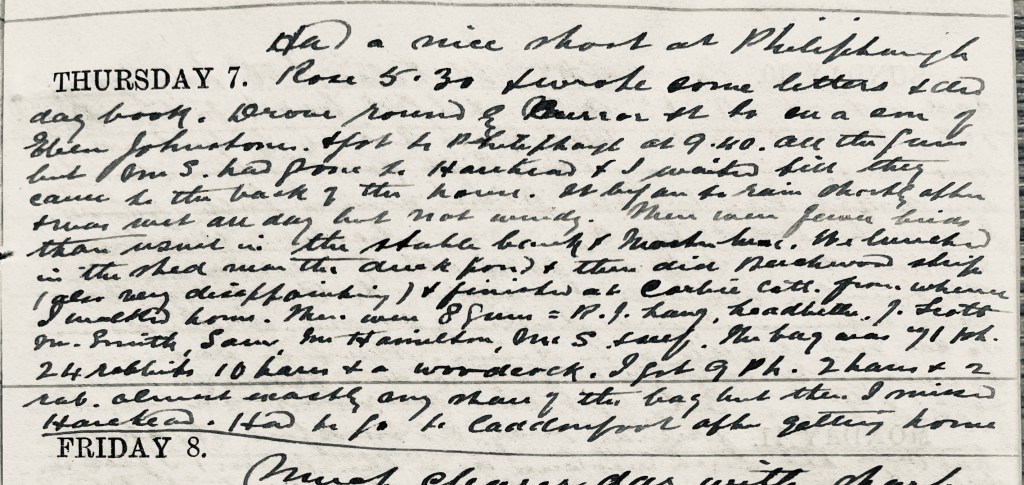 Had a nice shoot at Philiphaugh
THURSDAY 7. Rose 5.30 & wrote some letters & did
day book. Drove round by St to see a son of
Eben Johnstone. & got to Philiphaugh at 9.40. All the guns
but Mr S. had gone to Harehead & I waited till they
came to the back of the house. It began to rain shortly after
& was wet all day but not windy. There were fewer birds
than usual in the stable bank &. We lunched
in the shed near the duck pond & then did Beechwood strip
(also very disappointing) & finished at Corbie Cott. from whence
I walked home. There were 8 guns = R. J. Lang, Leadbetter, J. Scott
Mr. Smith, Sam, Mr Hamilton, Mr S. self. The bag was 71 ph.
24 rabbits 10 hares & a woodcock. I got 9 Ph. 2 hares & 2
rab. almost exactly my share of the bag but then I missed
Harehead. Had to go to Caddonfoot after getting home
FRIDAY 8.
Much clearer day with sharp